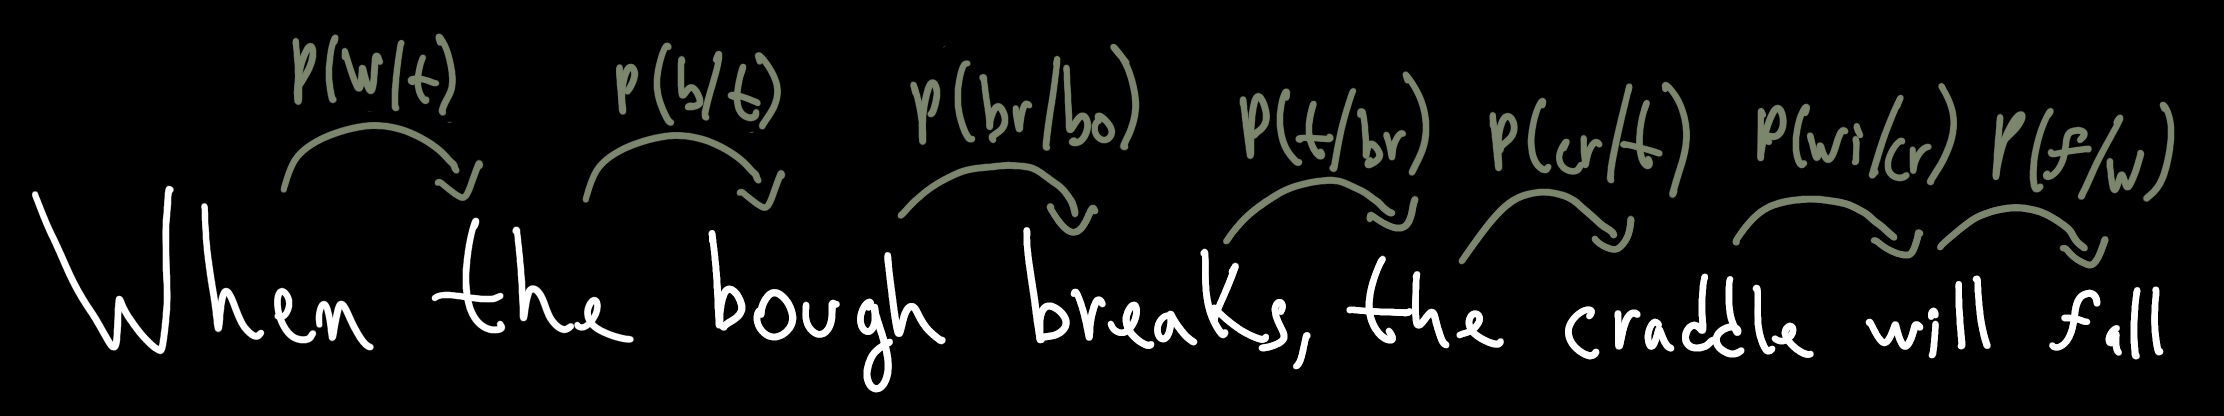 P(w/t) P(b/t) P(br/bo) P(t/br) P(cr/t) P(wi/cr) P(f/w)
When the bough breaks, the craddle will fall